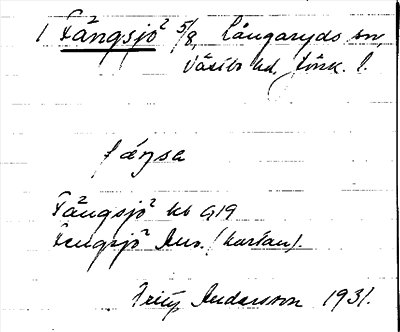 1 Fängsjö² 5/8, Långaryds sn,
Västbo hd. Jönk. l.
fäŋsa
Fängsjö² kb G19
Fengsjö² Ans. (kartan).
Fritz Andersson 1931.